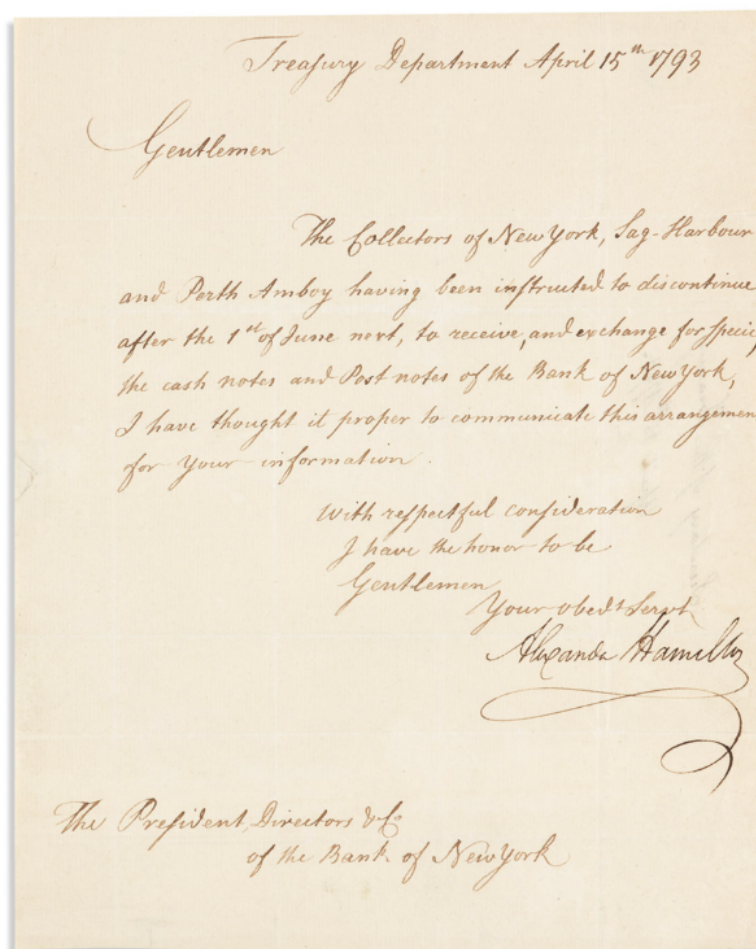 Treasury Department April 15th 1793
Gentlemen
The Collectors of New York, Sag-Harbour
and Perth Amboy having been instructed to discontinue
after the 1st of June next, to receive, and exchange for specie,
the cash notes and Post notes of the Bank of New York,
I have thought it proper to communicate this arrangemen
for your information.
With respectful consideration
I have the honor to be
Gentlemen
Your obedt Servt
Alexander Hamilton
The President, Directors & Co
of the Bank of New York